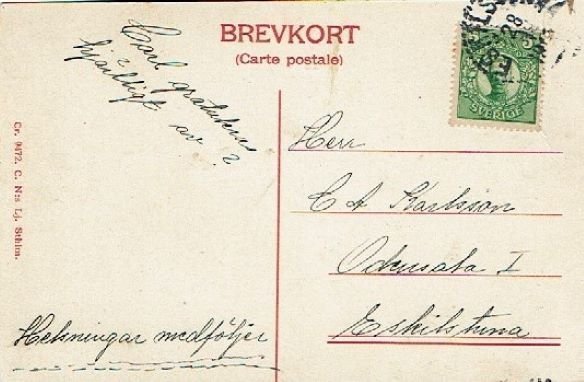 BREVKORT
(Carte postale)
Carl gratuleras
hjärtligt
av ?
Helsningar medföljer
Herr
C A Karlsson
I
Eskilstuna
5
SVERIGE
28
Cr. 9472. C. N:s Lj. Sthlm.